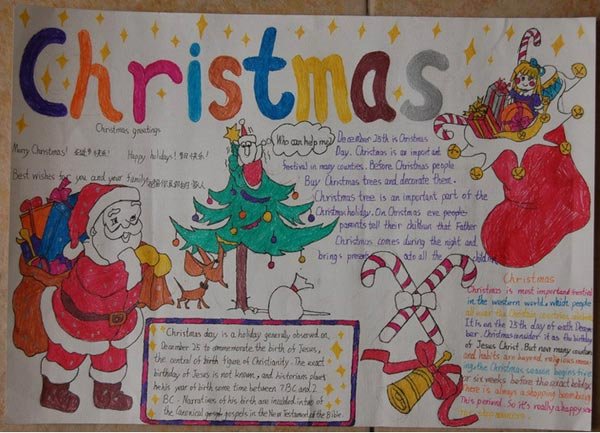 Christmas
Christmas greetings
Merry Christmas! 圣诞节快乐!
Happy holidays! 节日快乐!
Best wishes for you and your family
Who can help me?
December 25th is Christmas
Day. Christmas is an important
festival in many counties. Before Christmas people
Buy Christmas trees and decorate there.
Christmas tree is an important part of the
Christmas holiday. On Christmas eve, people
parents tell their children that Father
Christmas comes during the night and
brings presents to all the children
Christmas day is a holiday generally observed on
December 25 to commemorate the birth of Jesus,
the central of birth figure of Christianity. The exact
birthday of Jesus is not known, and historians place
his year of birth some between 7BC and 2
BC. Narratives of his birth are included in two of
the Canonical gospels in the New Testament of the Bible
Christmas
Christmas is most important festival
in the western world. Which people
all over the Christian countries
It is on the 25th day of each Decem-
ber. Christmas consider it as the birthday
of Jesus Christ. But now many customs
and habits are beyond religious mean-
ing. the Christmas season begins five
or six weeks before the exact holiday
There is always a shopping boom during
This period. So it's really a happy